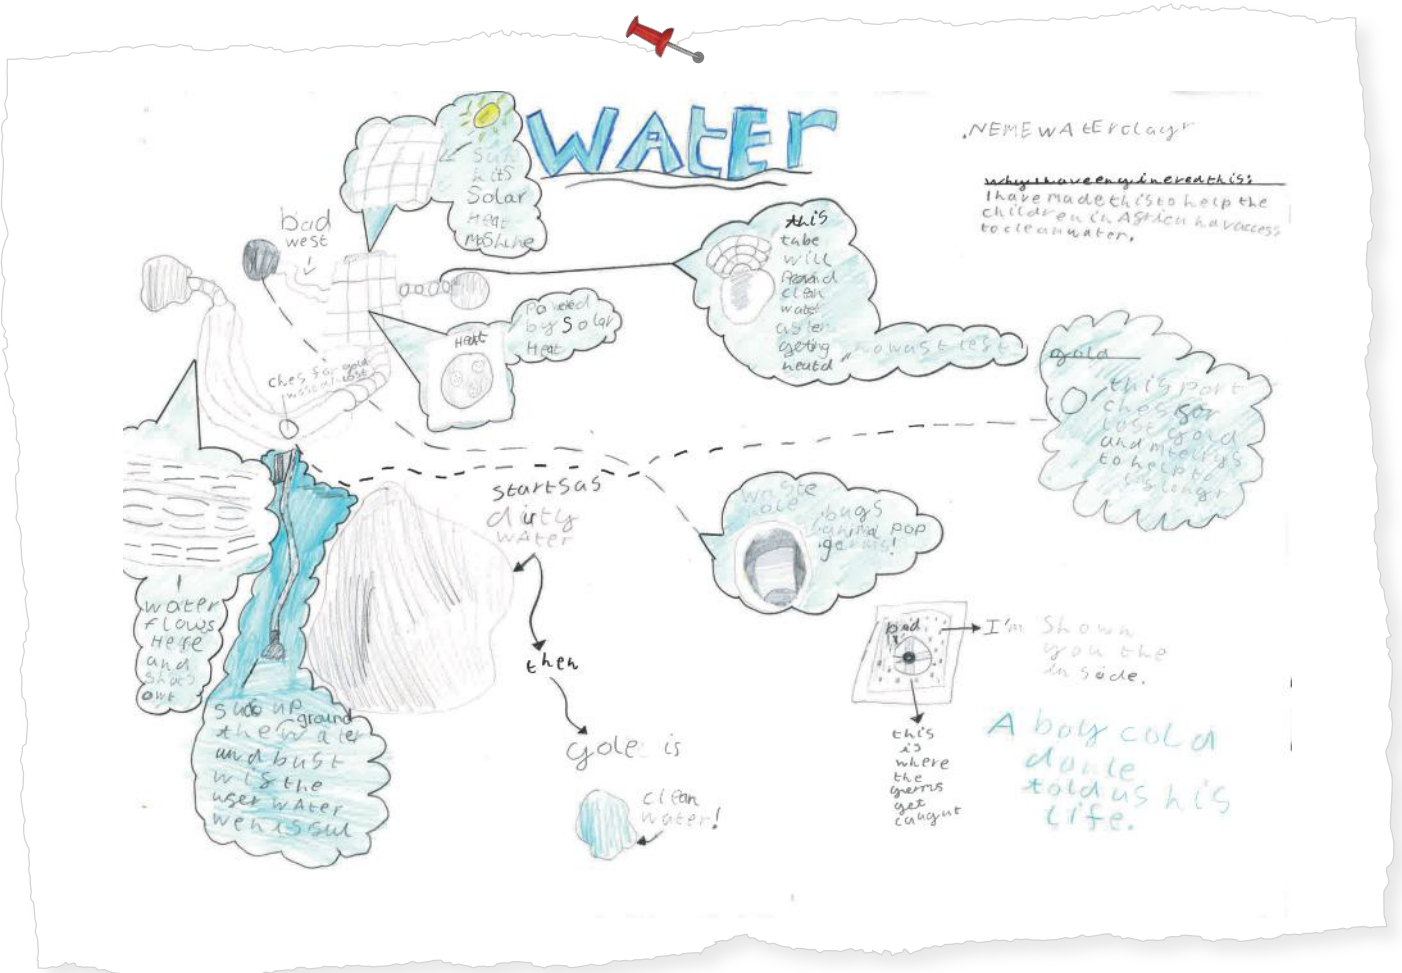 WAtEr
.NEMEWAtErclayr
why I have enginered this:
I have made this to help the
children in Africa hav access
to clean water.
Sun
hits
Solar
Heat
Moshine
bad
west
this
tube
will
clean
water
after
geting
heatd
no wast lest
Powered
by Solar
Heat
Heat
ches for gold
gold
this part
ches for
lost gold
and
to help t
startsas
dirty
water
then
gole is
clean
water!
waste
hole
bugs
pop
germs!
water
flows
Here
and
shots
owt
suck up
ground
the water
and bust
wis the
user water
wen is sul
bad
I'm Shown
you the
in side.
this
is
where
the
germs
get
caugut
A boy cold
danle
told us his
life.